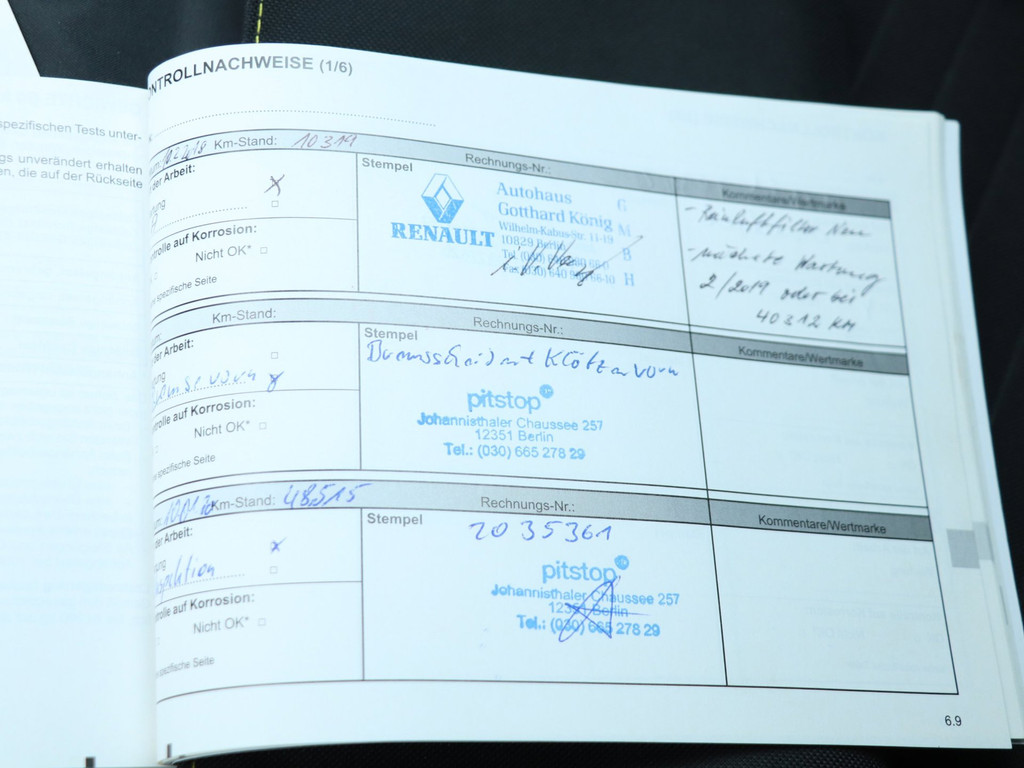 spezifischen Tests unter-
gs unverändert erhalten
en, die auf der Rückseite
NTROLLNACHWEISE (1/6)
Km-Stand: 10319 Rechnungs-Nr.:
der Arbeit:
Stempel
Kommentare/Wertmarke
RENAULT
Autohaus G
Gotthard König M
Wilhelm-Kabus-Str. 11-19 B
10829 Berlin H
- Reinluftfilter Neu
- nächste Wartung
2/2019 oder bei
40312 KM
trolle auf Korrosion:
Nicht OK*
spezifische Seite
Km-Stand: Rechnungs-Nr.:
der Arbeit:
Stempel
Kommentare/Wertmarke
Bremsscheiben mit Klötzen vorn
pitstop
Johannisthaler Chaussee 257
12351 Berlin
Tel.: (030) 665 278 29
trolle auf Korrosion:
Nicht OK*
spezifische Seite
Km-Stand: 48515 Rechnungs-Nr.:
der Arbeit:
Stempel
Kommentare/Wertmarke
2035361
spektion
pitstop
Johannisthaler Chaussee 257
12351 Berlin
Tel.: (030) 665 278 29
trolle auf Korrosion:
Nicht OK*
spezifische Seite
6.9